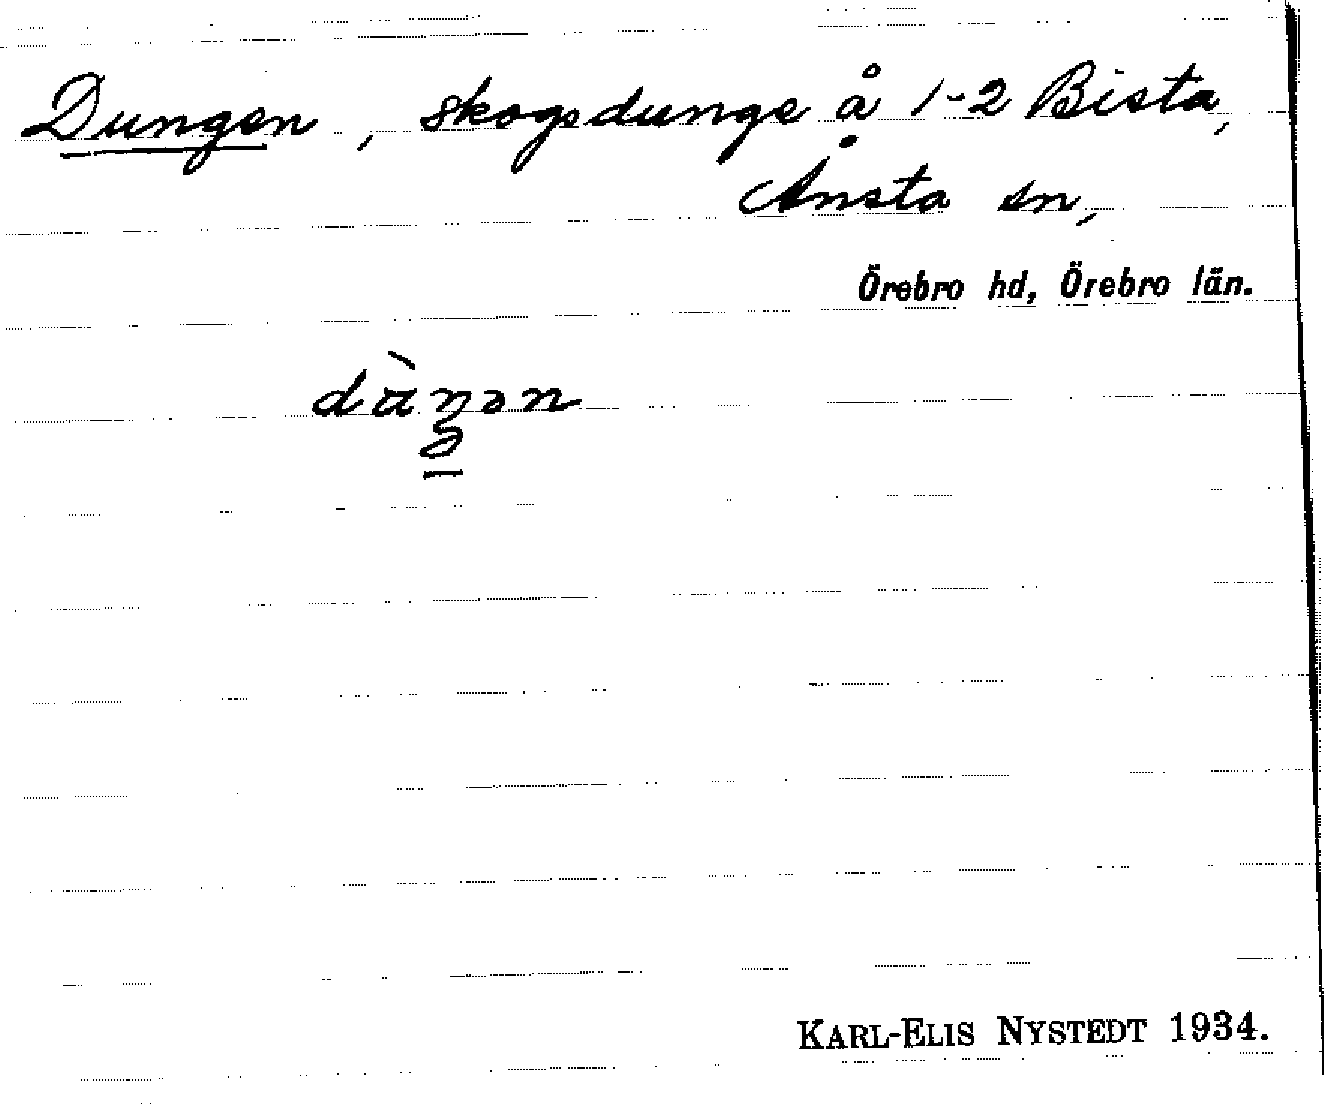 Dungen, skogsdunge å 1-2 Bista,
Ånsta sn,
Örebro hd, Örebro län.
KARL-ELIS NYSTEDT 1934.